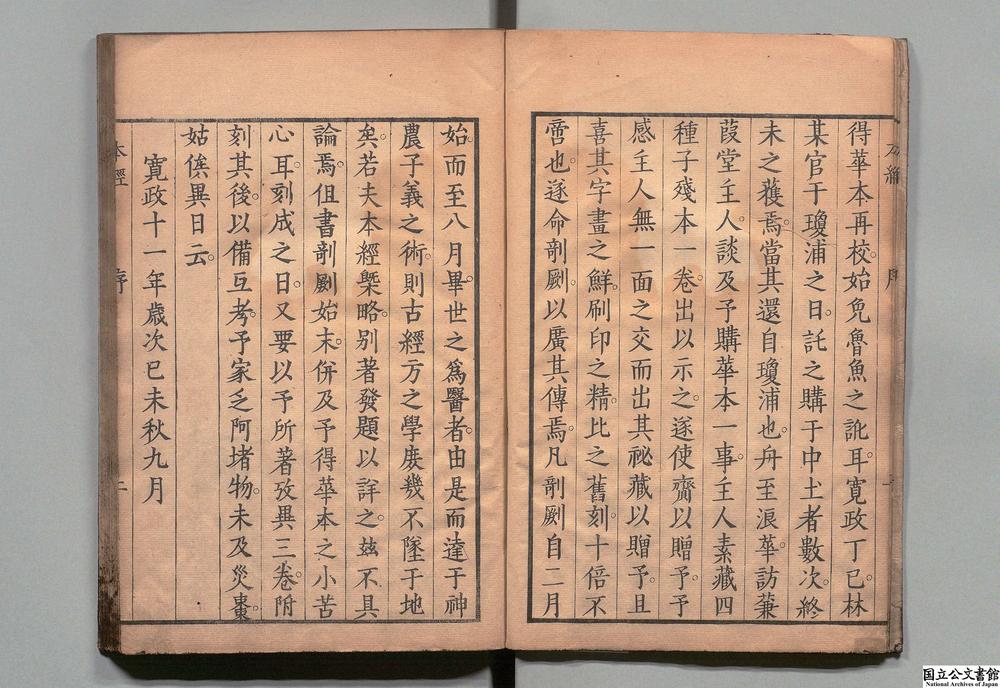 得華本再校。始免魯魚之訛耳。寛政丁巳。林
某官于瓊浦之日。託之購于中土者數次。終
未之獲焉。當其還自瓊浦也。舟至浪華。訪蒹
葭堂主人。談及予購華本一事。主人素藏四
種子殘本一卷。出以示之。遂使齎以贈予。予
感主人無一面之交而出其祕藏以贈予。且
喜其字畫之鮮。刷印之精。比之舊刻。十倍不
啻也。遂命剞劂。以廣其傳焉。凡剞劂自二月
始。而至八月畢。世之爲醫者。由是而達于神
農子義之術。則古經方之學。庶幾不墜于地
矣。若夫本經槩略。別著發題以詳之。玆不具
論焉。但書剞劂始末。併及予得華本之小苦
心耳。刻成之日。又要以予所著攷異三卷。附
刻其後。以備互考。予家乏阿堵物。未及災棗。
姑俟異日云。
寛政十一年歳次己未秋九月
本經
序
二
國立公文書館
National Archives of Japan